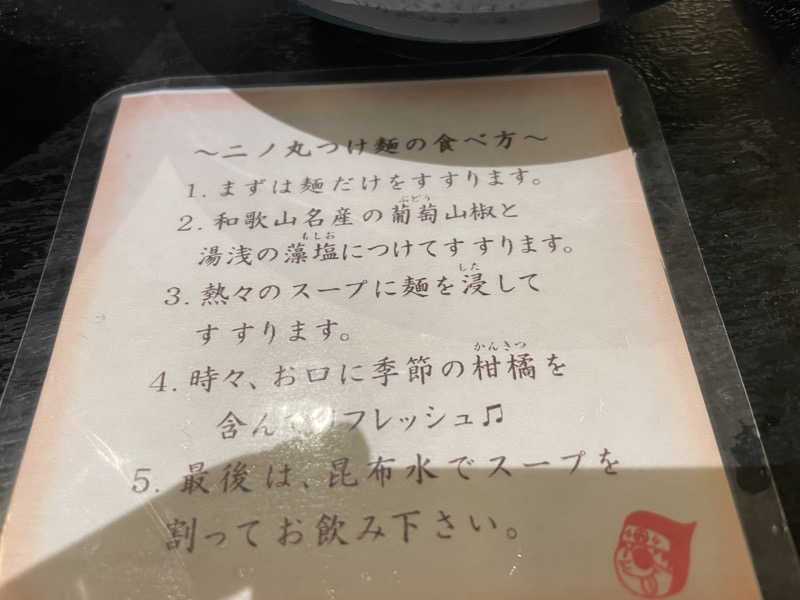 ～二ノ丸つけ麺の食べ方～
1. まずは麺だけをすすります。
ぶどう
2. 和歌山名産の葡萄山椒と
もしお
湯浅の藻塩につけてすすります。
した
3. 熱々のスープに麺を浸して
すすります。
かんきつ
4. 時々、お口に季節の柑橘を
含んでリフレッシュ♫
5. 最後は、昆布水でスープを
割ってお飲み下さい。